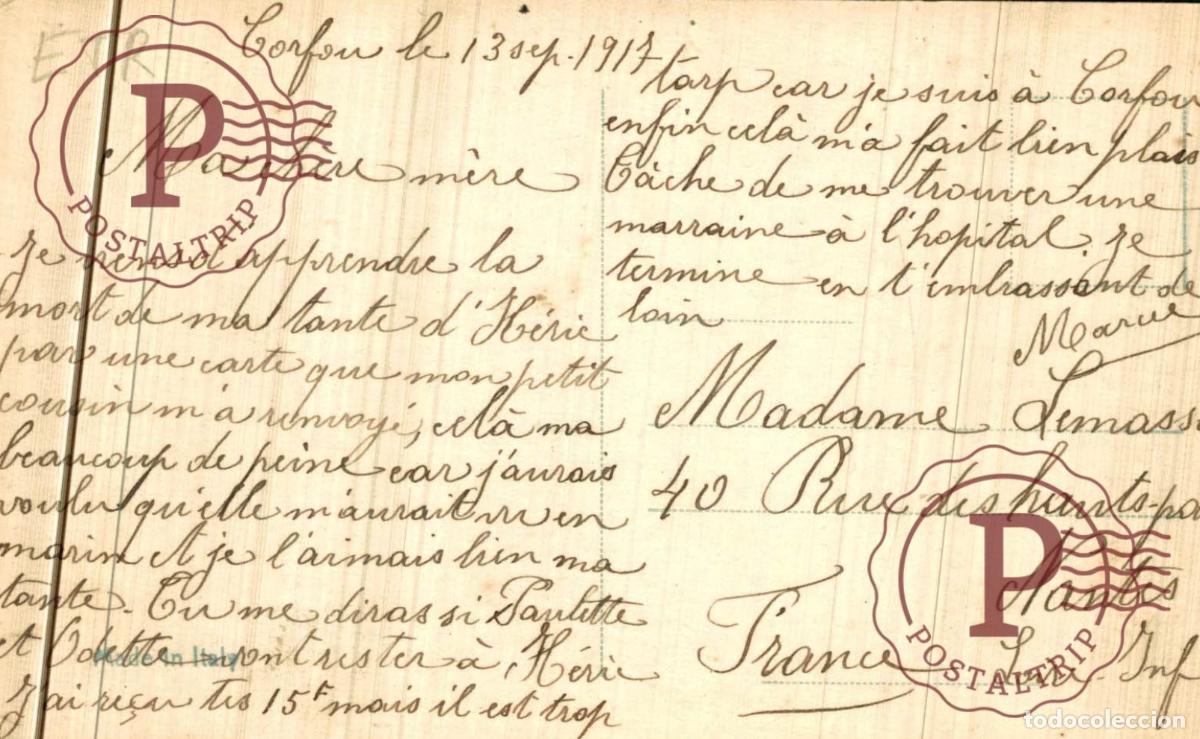 ETR
Corfou le 13 sep. 1917
Ma chère mère
Je viens d'apprendre la
mort de ma tante d'Héric
par une carte que mon petit
cousin m'a renvoyé, celà ma
beaucoup de peine car j'aurais
voulu qu'elle m'aurait vu en
marin et je l'aimais bien ma
tante. Tu me diras si Paulette
et Odette vont rester à Héric
J'ai reçu tes 15f mais il est trop
tarp car je suis à Corfou
enfin celà m'a fait bien plais
Tâche de me trouver une
marraine à l'hopital. Je
termine en t'embrassant de
loin
Madame Lemass
40 Rue des hauts-pa
Nantes
France Inf
Made in Italy
P
POSTALTRIP
P
POSTALTRIP
todocoleccion